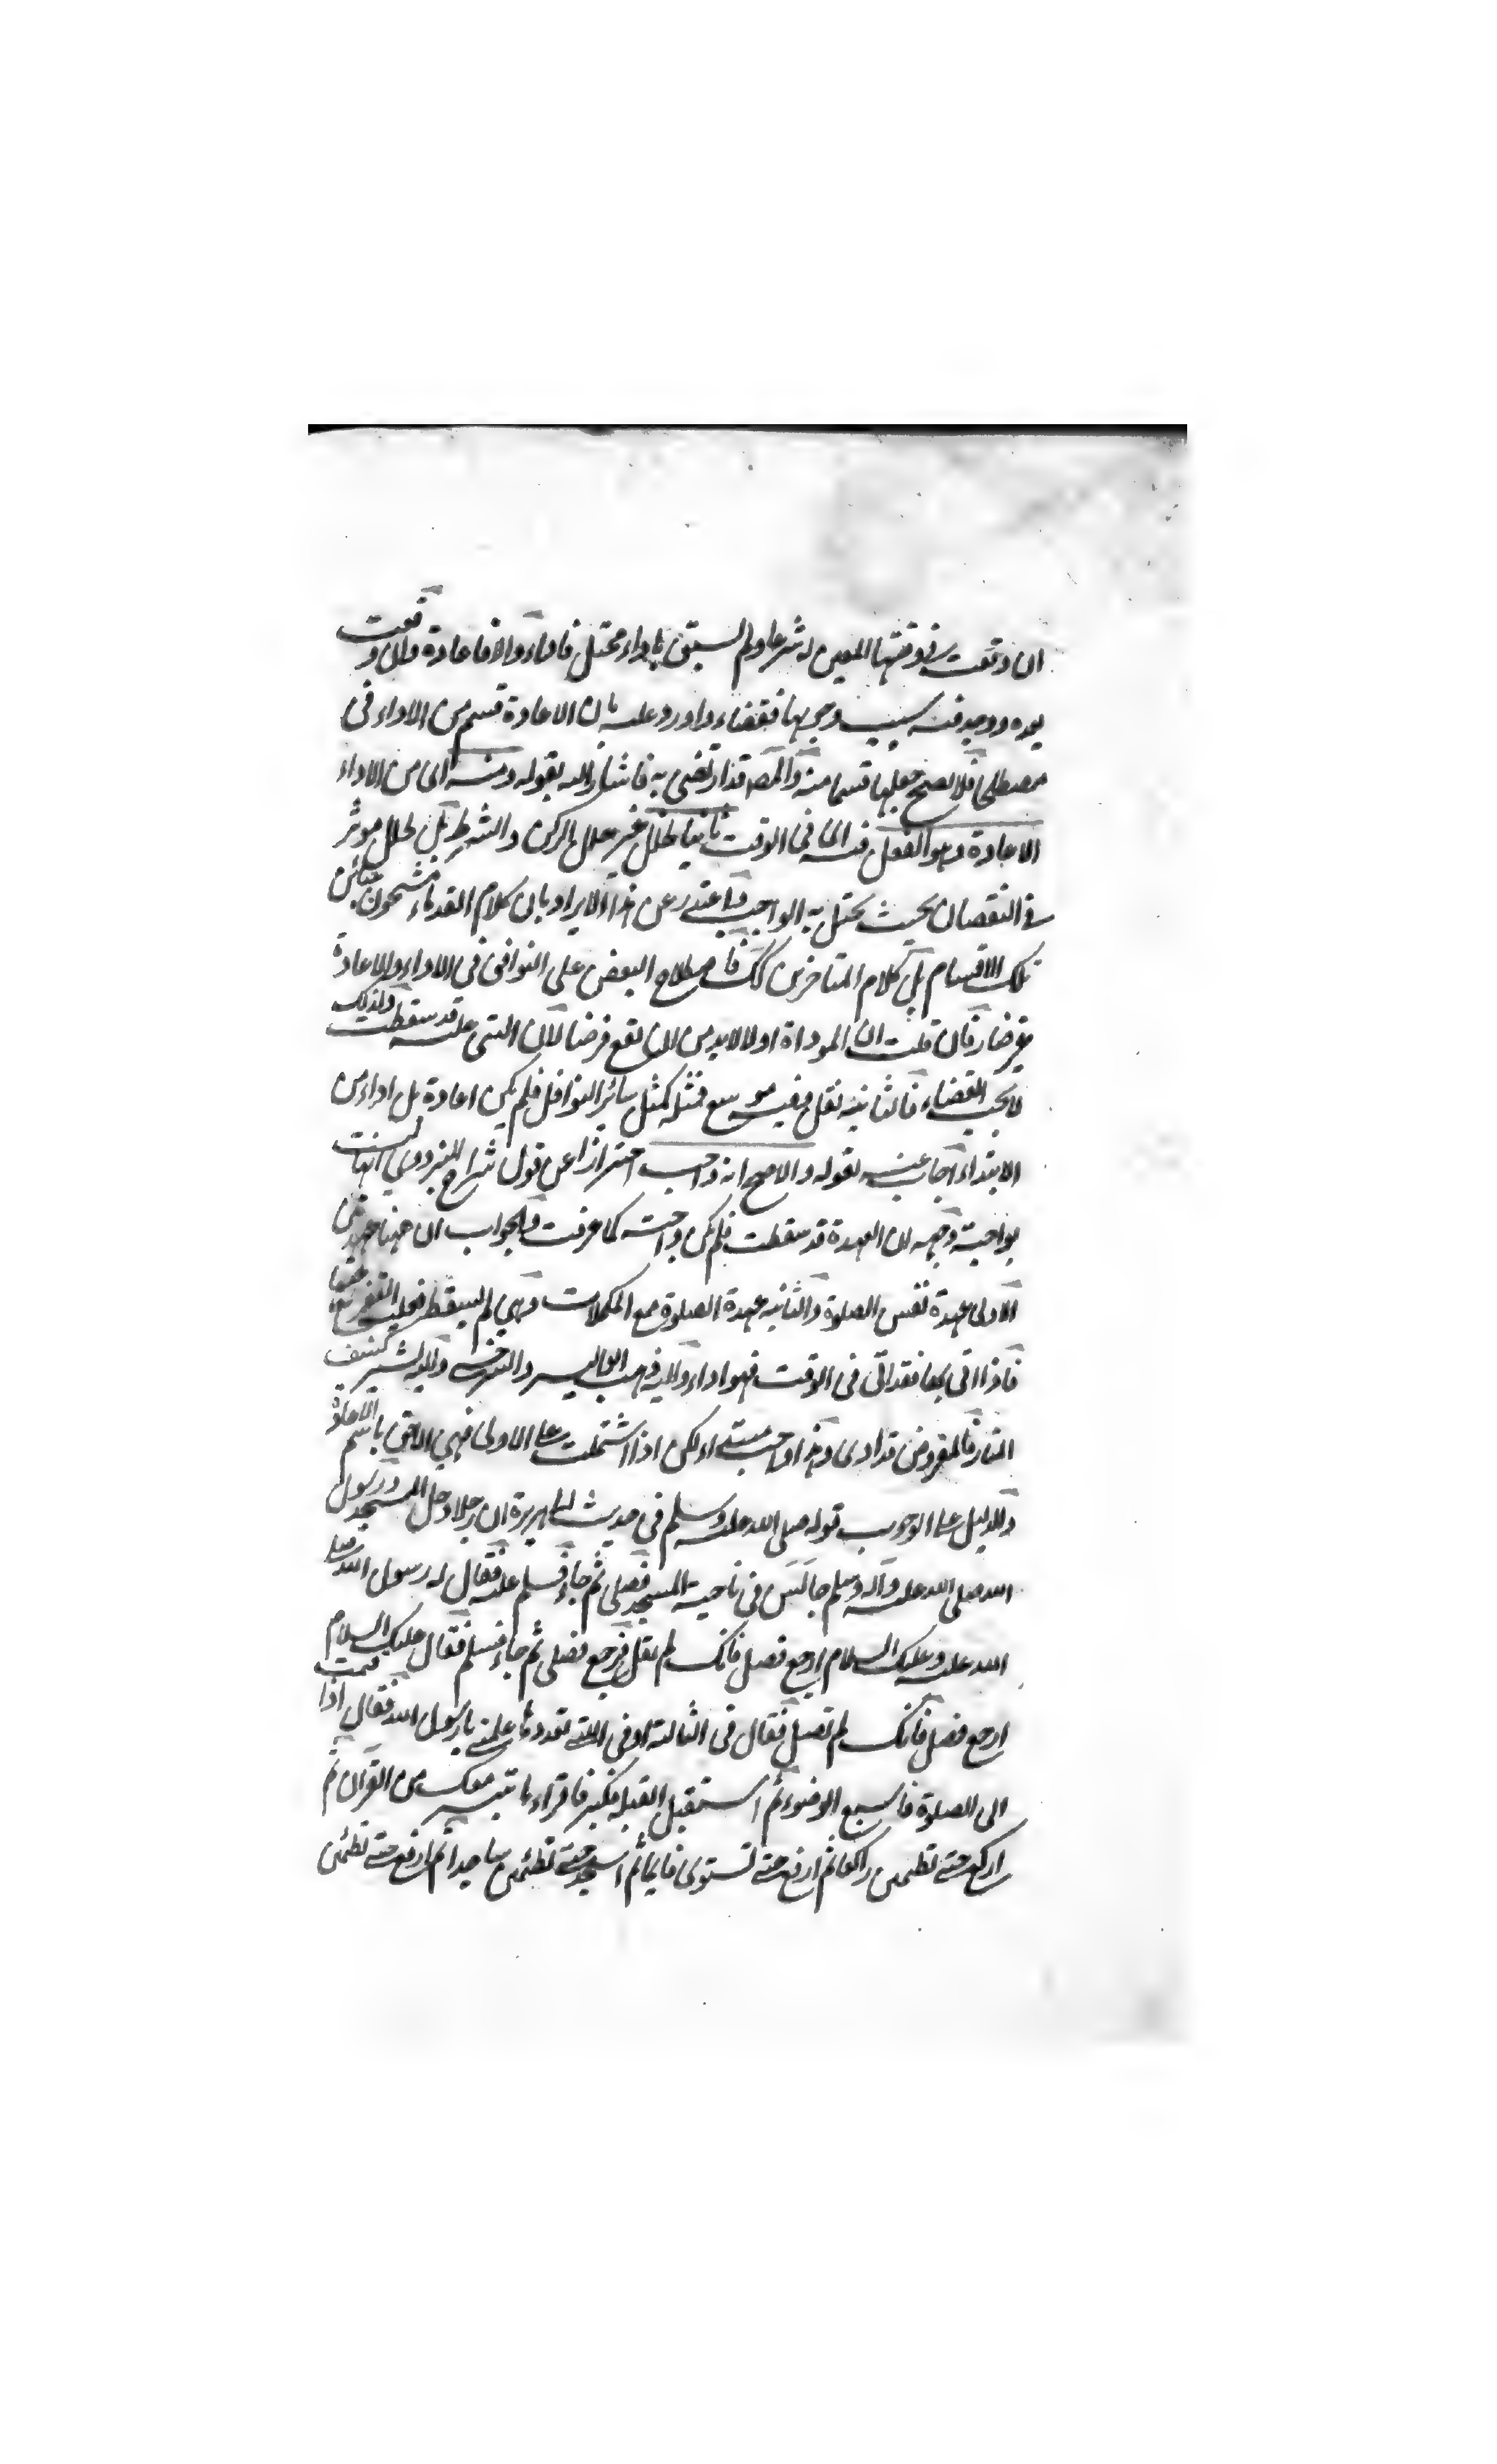 ان وقعت فى وقتها المعين له شرعا ولم يسبق باداء مختل فاداء والا فاعادة وان وقعت
بعده ووجد فيه سبب وجوبها فقضاء واورد عليه بان الاعادة قسم من الاداء فى
مصطلح فلا يصح جعلها قسما منه والمصـ قد ارتضى به فاشار اليه بقوله ومنه اى من الاداء
الاعادة وهو الفعل فيه اى فى الوقت ثانيا لخلل غير خلل الركن والشرط بل لخلل موثر
فى النقصان بحيث يختل به الواجب واعتذر عن هذا الايراد بان كلام القدماء مشحون
تلك الاقسام بل كلام المتاخرين كك فاصطلاح البعض على التوافق فى الاداء والاعادة
فان قلت ان المودّاة اولا لابد من ان تقع فرضا لان التى عليه قد سقطت ولذلك
لا يجب القضاء فالثانية نفل فمثله كمثل سائر النوافل فلم يكن اعادة بل اداء من
الابتداء اجاب عنه بقوله والاصح انه واجب احترازا عن قول شراح البزدوى انها ليست
بواجبة وجهه ان العهدة قد سقطت فلم يكن واجبة كما عرفت والجواب ان ههنا عهدتين
الاولى عهدة نفس الصلوة والثانية عهدة الصلوة مع المكملات وهى لم يسقط
فاذا اتى بها فقد اتى فى الوقت فهو اداء واليه ذهب ابو اليسر والسرخسى
المنار فالمفروض قد ادى وهذا واجب مبتداء لكن اذا اشتملت على الاولى فهى الاحق باسم الاعادة
والدليل على الوجوب قوله صلى الله عليه وسلم فى حديث ابى هريرة ان رجلا دخل المسجد ورسول
الله صلى الله عليه وآله وسلم جالس فى ناحية المسجد فصلى ثم جاء فسلم عليه فقال له رسول الله صلى
الله عليه وعليك السلام ارجع فصل فانك لم تصل فرجع فصلى ثم جاء فسلم فقال عليك السلام
ارجع فصل فانك لم تصل فقال فى الثالثة او فى التى بعدها علمنى يا رسول الله فقال اذا قمت
الى الصلوة فاسبغ الوضوء ثم استقبل القبلة فكبر فاقراء ما تيسر معك من القرآن ثم
اركع حتى تطمئن راكعا ثم ارفع حتى تستوى قايما ثم اسجد حتى تطمئن ساجدا ثم ارفع حتى تطمئن